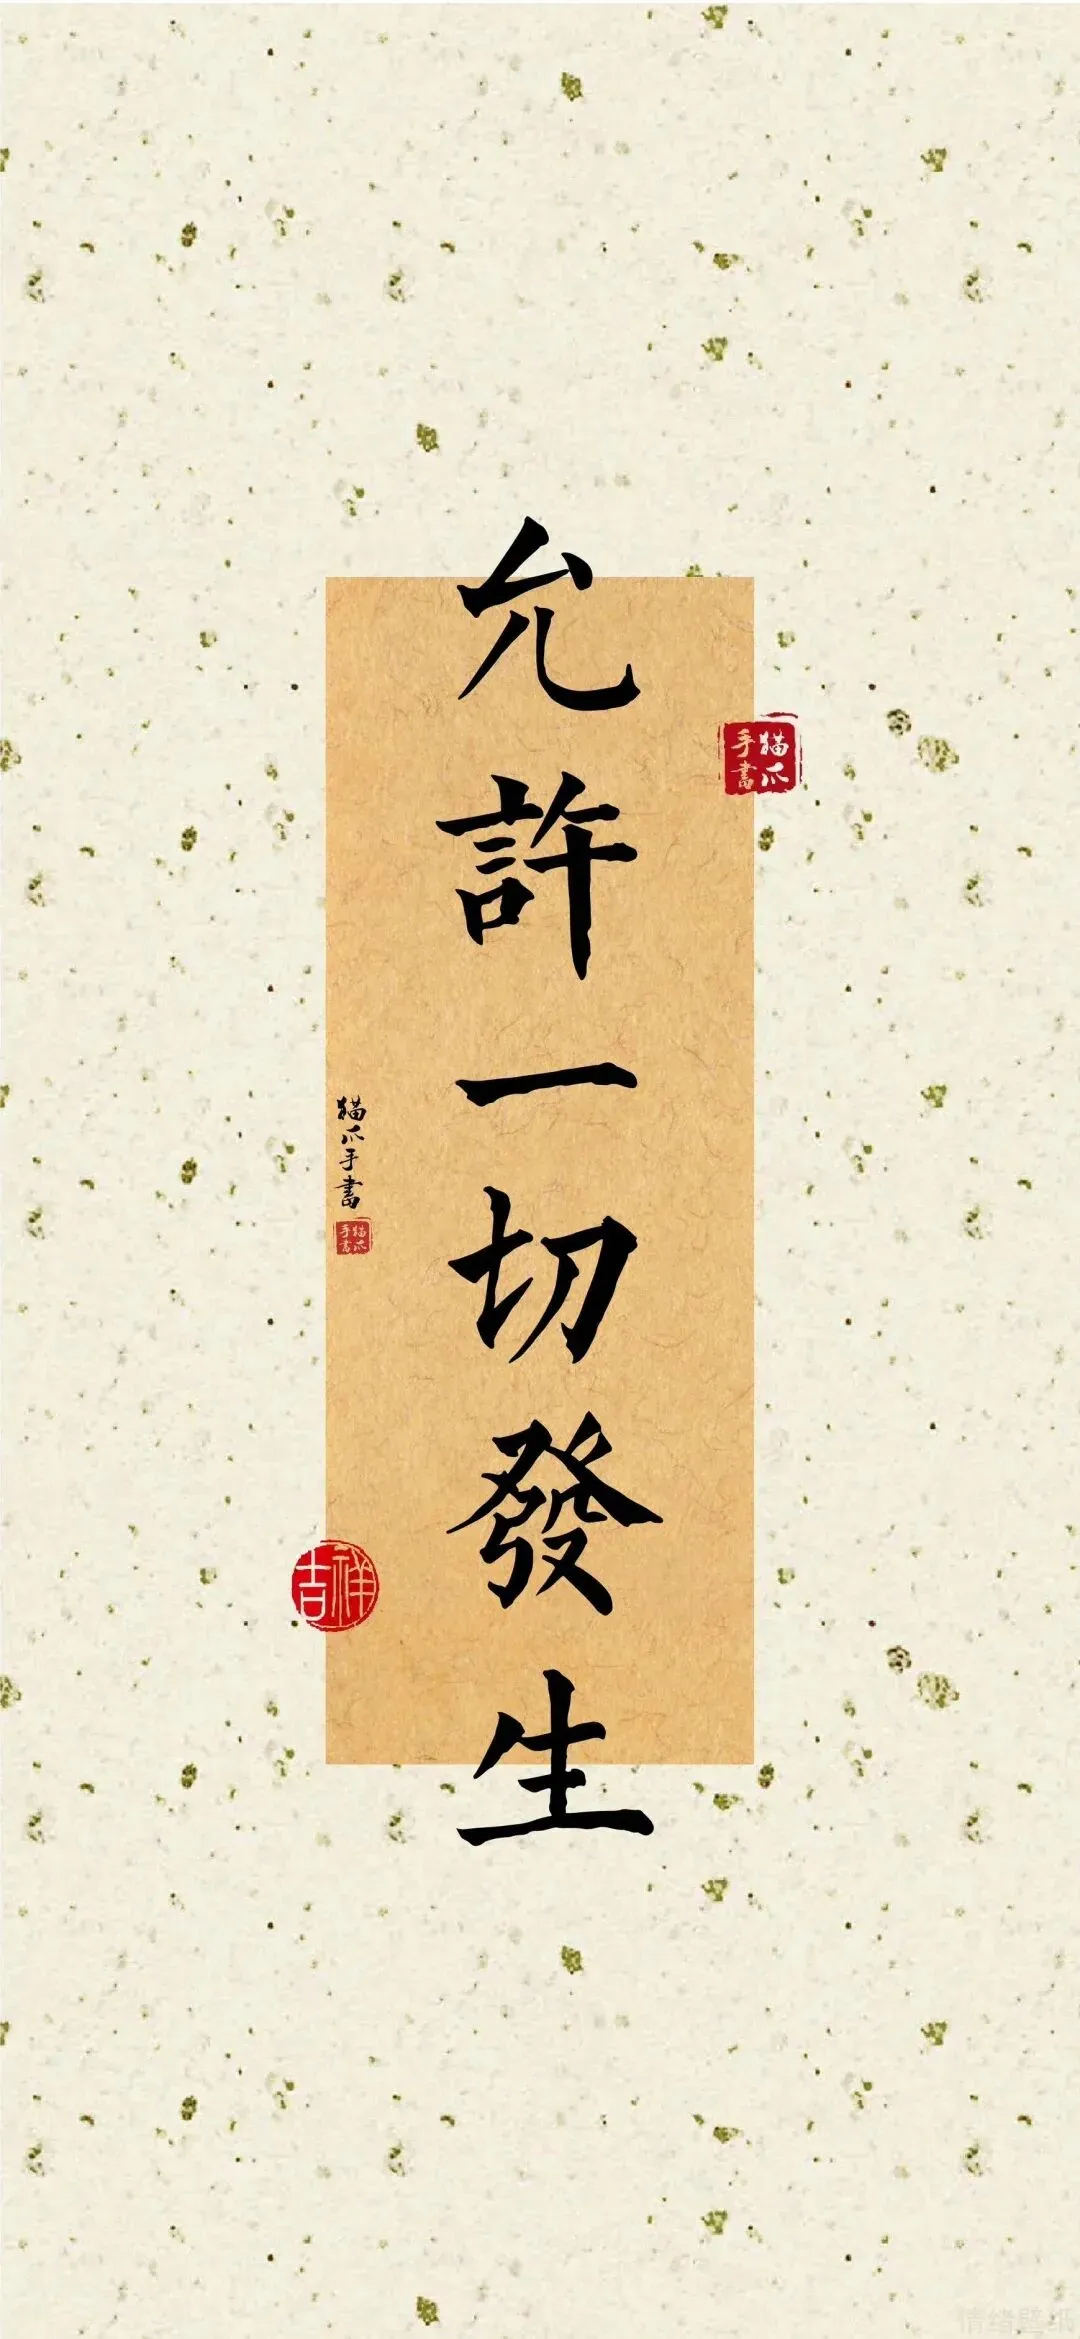 允許一切發生
猫爪
手書
猫爪手書
猫爪
手書
吉祥
情绪壁纸